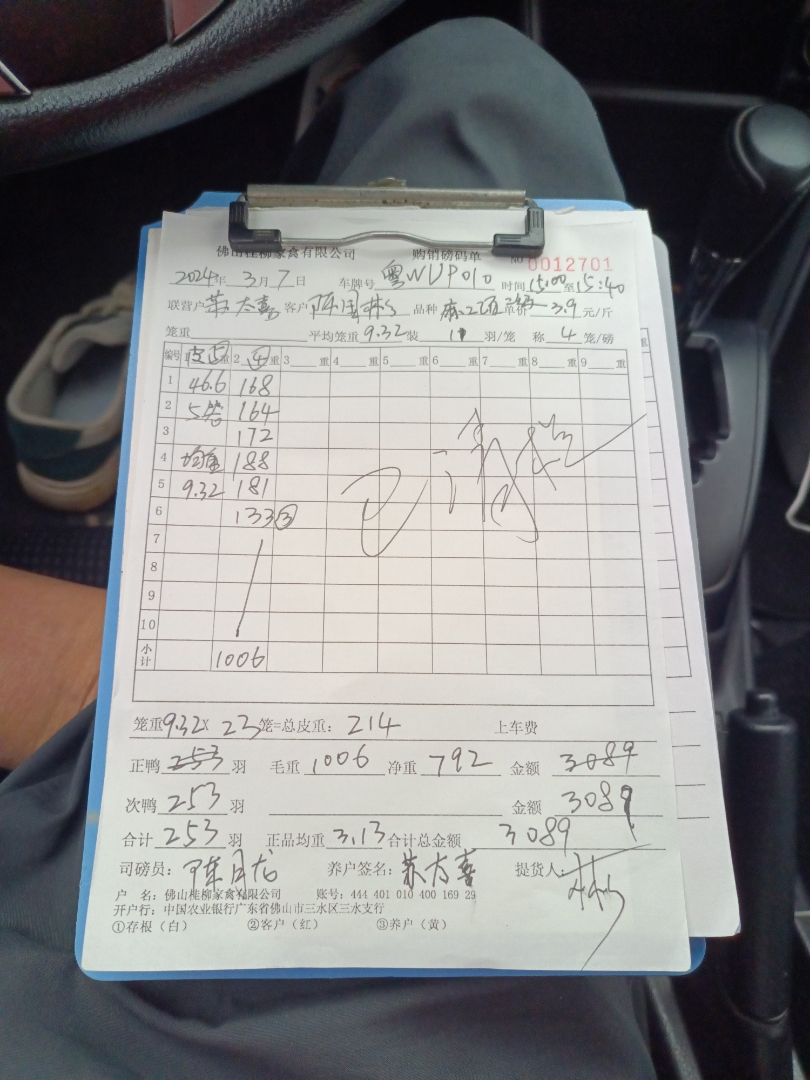 佛山桂柳家禽有限公司 购销磅码单 № 0012701
2024年 3月 7日 车牌号 粤WUP010 时间15:00至15:40
联营户 太喜 客户 陈国 品种 单价 3.9 元/斤
笼重 平均笼重 9.32 装 11 羽/笼 称 4 笼/磅
编号 1 皮 重 2 ④ 重 3 重 4 重 5 重 6 重 7 重 8 重 9 重
1 46.6 168
2 5笼 164
3 172
4 均重 188
5 9.32 181
6 133③
7
8
9
10
小计 1006
已
笼重9.32× 23笼=总皮重: 214 上车费
正鸭 253 羽 毛重 1006 净重 792 金额 3089
次鸭 253 羽 金额 3089
合计 253 羽 正品均重 3.13 合计总金额 3089
司磅员: 陈 龙 养户签名: 太喜 提货人: 林
户 名: 佛山桂柳家禽有限公司 账号: 444 401 010 400 169 29
开户行: 中国农业银行广东省佛山市三水区三水支行
①存根(白) ②客户(红) ③养户(黄)